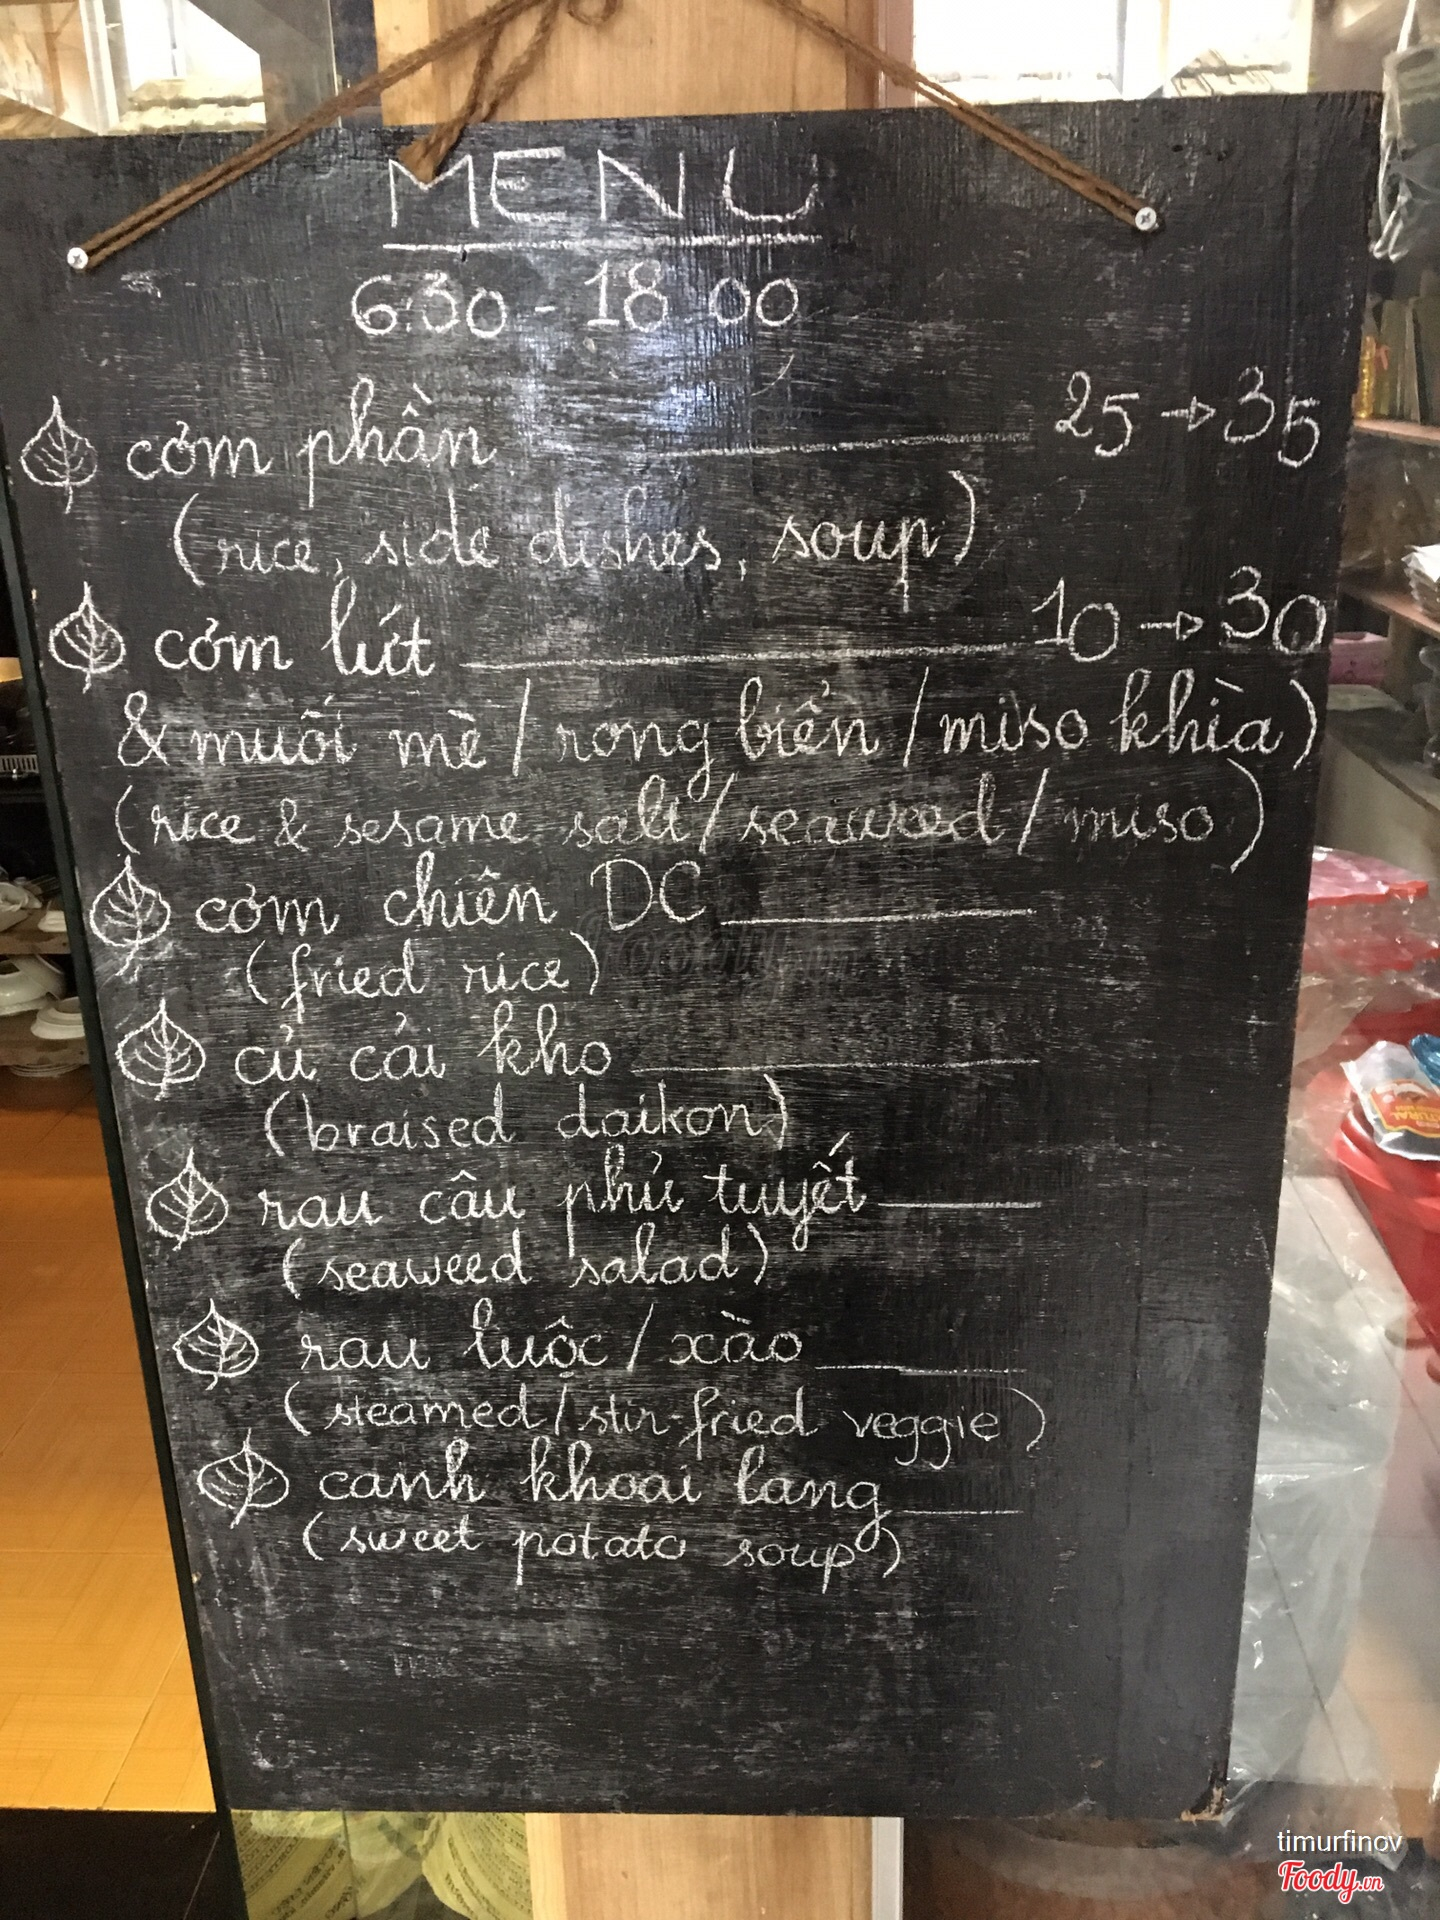 MENU
6:30 - 18:00
cơm phần 25 → 35
(rice, side dishes, soup)
cơm lứt 10 → 30
& muối mè / rong biển / miso khìa)
(rice & sesame salt / seaweed / miso)
cơm chiên DC
(fried rice)
củ cải kho
(braised daikon)
rau câu phủ tuyết
(seaweed salad)
rau luộc / xào
(steamed / stir-fried veggie)
canh khoai lang
(sweet potato soup)
timurfinov
Foody.vn